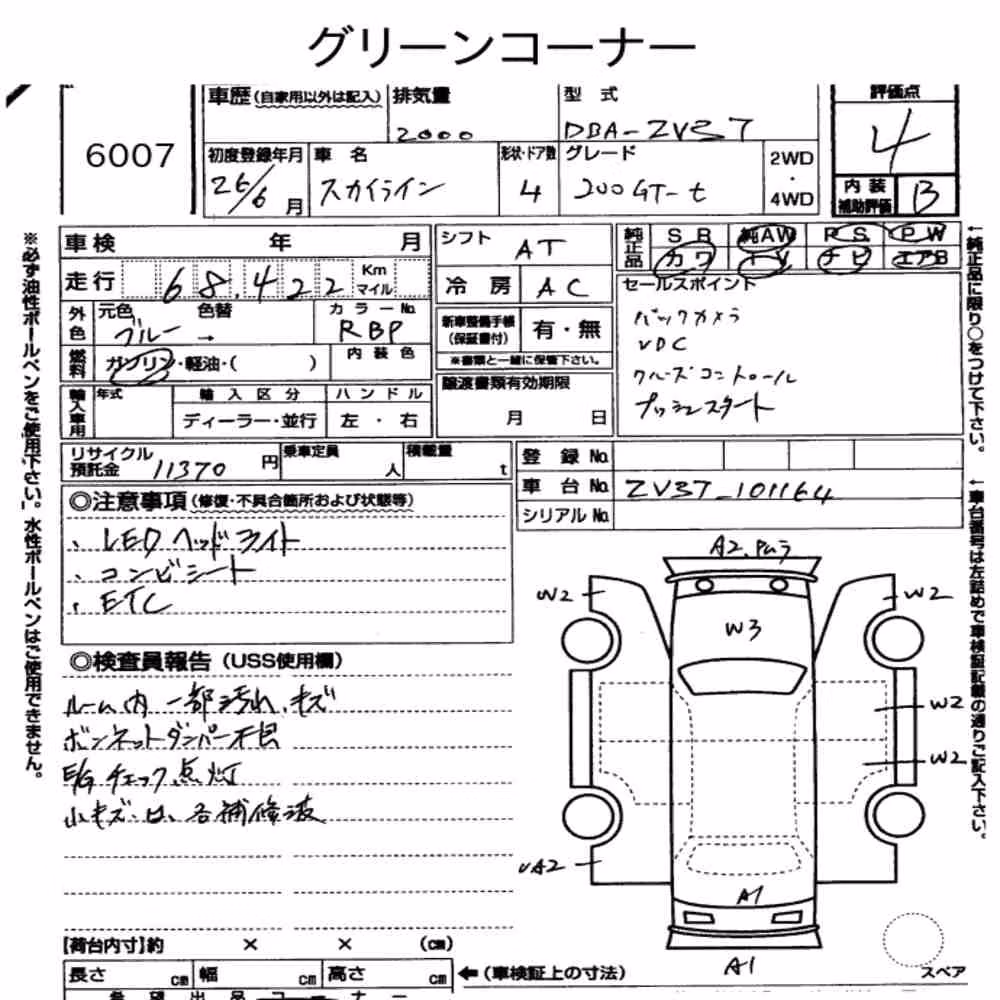 グリーンコーナー
6007
車歴(自家用以外は記入) 排気量 型式 評価点
2000 DBA-ZV37 4
初度登録年月 車名 形状・ドア数 グレード 2WD・4WD
26/6月 スカイライン 4 200GT-t
内装補助評価 B
車検 年 月
シフト AT
純正品 SR 純AW PS PW
カワ TV ナビ エアB
走行 68,422 Km マイル
冷房 AC
セールスポイント
外色 元色 色替 カラーNo.
ブルー → RBP
新車整備手帳(保証書付) 有・無
※書類と一緒に保管下さい。
バックカメラ
VDC
クルーズコントロール
プッシュスタート
燃料 ガソリン・軽油・( ) 内装色
譲渡書類有効期限
月 日
輸入車用 年式 輸入区分 ハンドル
ディーラー・並行 左・右
リサイクル預託金 11370円 乗車定員 人 積載量 t
登録No.
車台No. ZV37-101164
シリアルNo.
◎注意事項(修復・不具合箇所および状態等)
、LEDヘッドライト
、コンビシート
、ETC
◎検査員報告(USS使用欄)
ルーム内一部汚れ、キズ
ボンネットダンパー不良
E/Gチェック点灯
小キズ・凹、各補修波
A2、Pムラ
W2
W2
W3
W2
W2
A1
A1
【荷台内寸】約 × × (cm)
長さ cm 幅 cm 高さ cm ←(車検証上の寸法)
スペア
希望出品コーナー
※必ず油性ボールペンをご使用下さい。水性ボールペンはご使用できません。
←純正品に限り○をつけて下さい。
←車台番号は左詰めで車検証記載の通りご記入下さい。